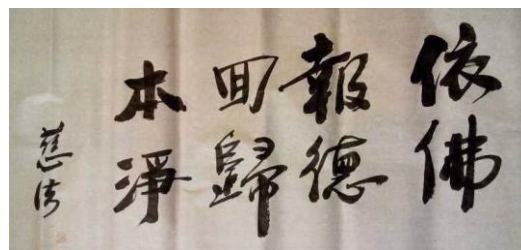 依佛
報德
回歸
本淨